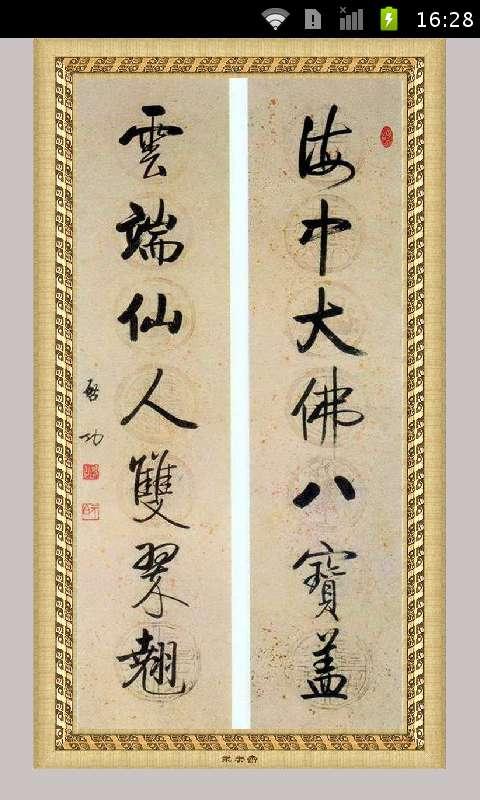 16:28
海中大佛八寶盖
雲端仙人雙翠翘
啟功